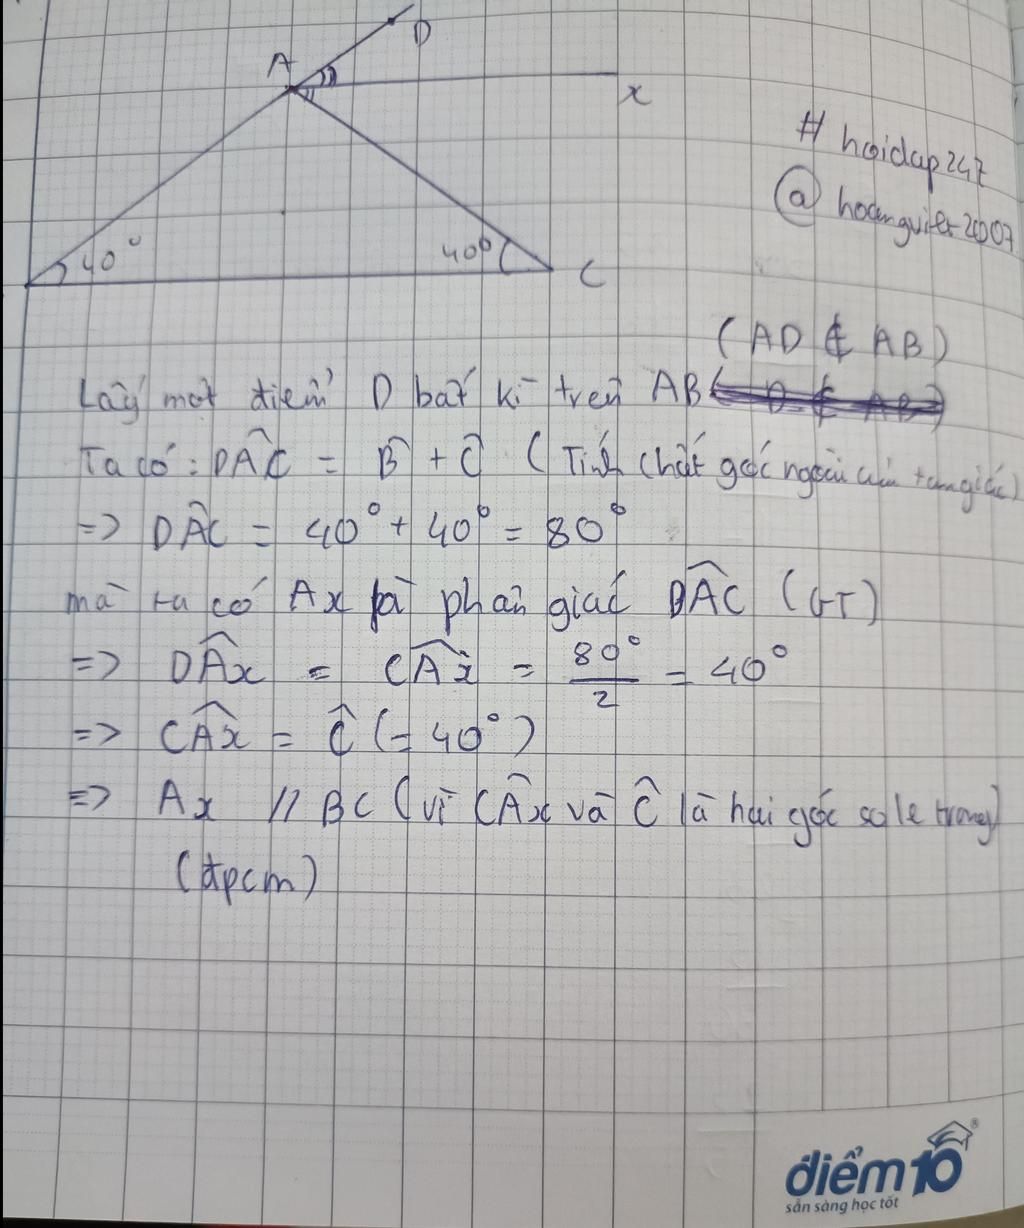 D
A
x
# hoidap247
@ hoangviet2007
40°
40°
C
(AD ∉ AB)
Lấy một điểm D bất kì trên AB
Ta có: DAC = B + C (Tính chất góc ngoài của tam giác)
=> DAC = 40° + 40° = 80°
mà ta có Ax là phân giác DAC (GT)
=> DAx = CAx = 80°/2 = 40°
=> CAx = C (= 40°)
=> Ax // BC (vì CAx và C là hai góc so le trong)
(đpcm)
điểm10
sẵn sàng học tốt